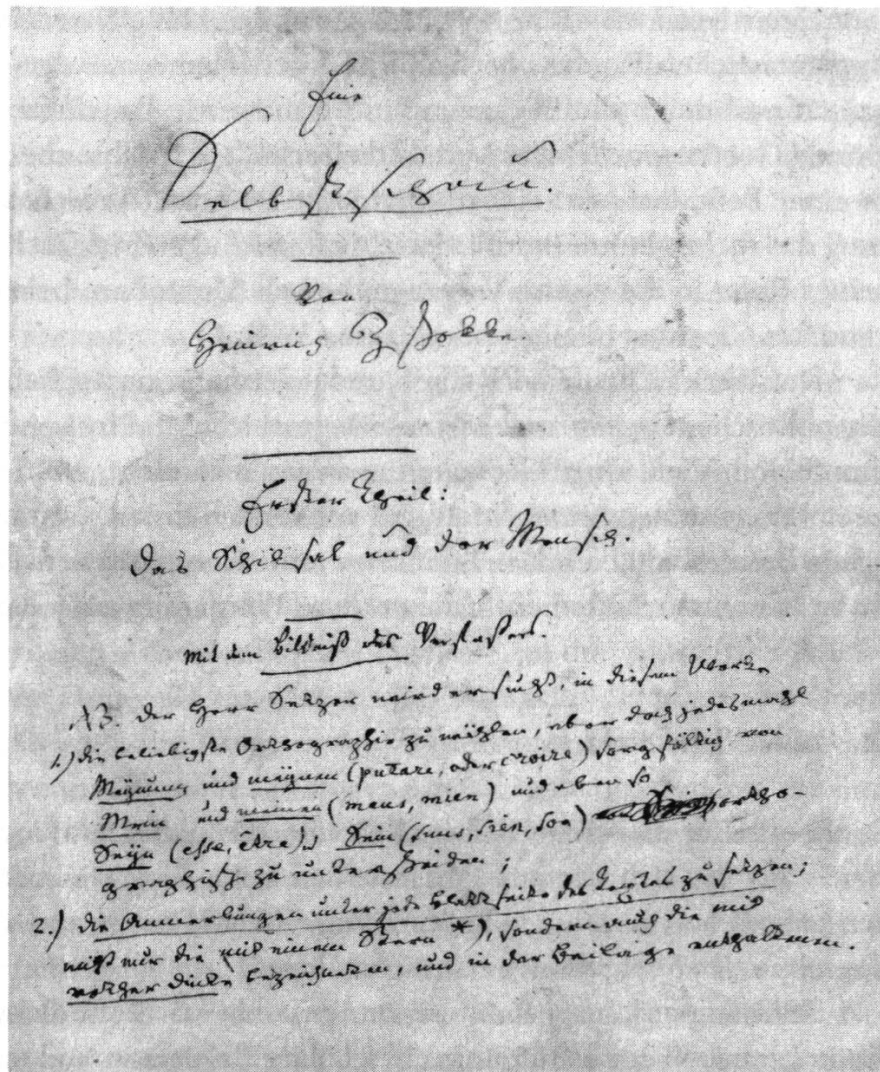 Eine
Selbstschau.
Von
Heinrich Zschokke
Erster Theil:
Das Schiksal und der Mensch.
mit dem Bildniß des Verfassers.
NB. Der Herr Setzer wird ersucht, in diesem Werke
1.) die beliebigste Orthographie zu wählen, aber doch jedesmahl
Meynung und meynen (putare, oder croire) sorgfältig von
Mein und meinen (meus, mien) und eben so
Seyn (esse, être) u Sein (suus, sien, son) ortho-
graphisch zu unterscheiden;
2.) die Anmerkungen unter jede Blattseite des Textes zu setzen;
nicht nur die mit einem Stern *), sondern auch die mit
rother Dinte bezeichneten, und in der Beilage enthaltnen.